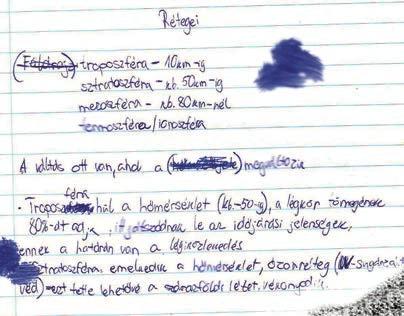 Rétegei
(Földrajz) troposzféra - 10 km-ig
sztratoszféra - kb. 50km-ig
mezoszféra - kb. 80km-nél
termoszféra/ionoszféra
A váltás ott van, ahol a megváltozik
• Troposzféra hől a hőmérséklet (kb -50-ig), a légkör tömegének
80%-át adja, itt játszódnak le az időjárási jelenségek,
ennek a határán van a légiközlekedés
sztratoszféra: emelkedik a hőmérséklet, ózonréteg (UV-sugárzástól
véd) ez tette lehetővé a szárazföldi létet, vékonyodik.